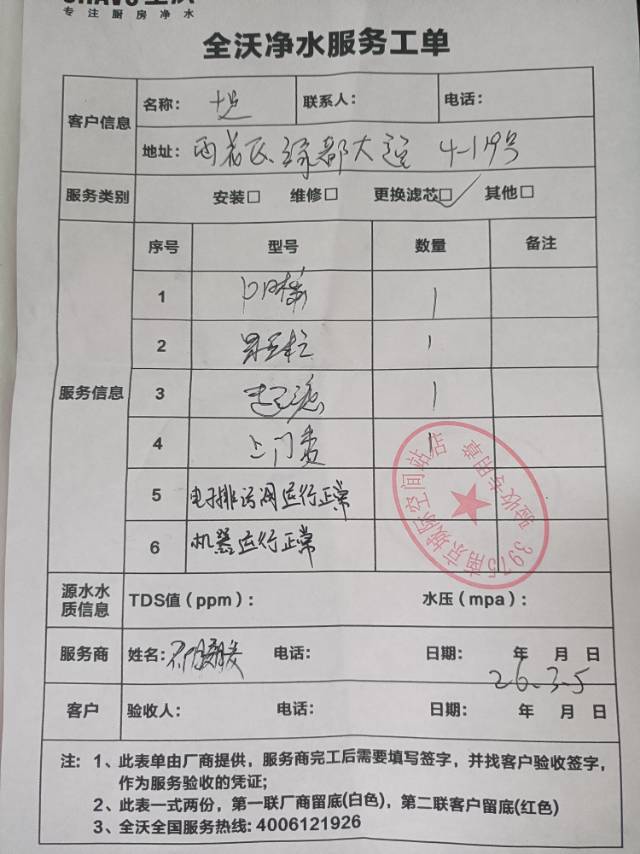 专注厨房净水
全沃净水服务工单
客户信息
名称：
联系人：
电话：
地址： 大道 4-119号
服务类别
安装□ 维修□ 更换滤芯□ 其他□
序号 型号 数量 备注
服务信息
1 1
2 1
3 超滤 1
4 上门费 1
5 电子排污阀运行正常
6 机器运行正常
3975南京城际空间站店
验收专用章
源水水质信息
TDS值（ppm）： 水压（mpa）：
服务商 姓名： 电话： 日期： 年 月 日
26.3.5
客户 验收人： 电话： 日期： 年 月 日
注：1、此表单由厂商提供，服务商完工后需要填写签字，并找客户验收签字，
作为服务验收的凭证；
2、此表一式两份，第一联厂商留底(白色)，第二联客户留底(红色)
3、全沃全国服务热线: 4006121926